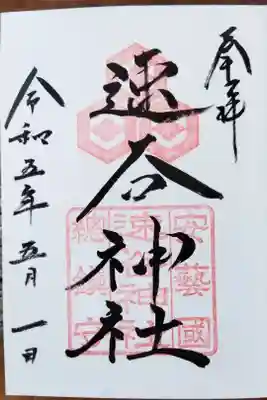 奉拝
速谷神社
令和五年五月一日
安藝國
速谷神社
總鎮守